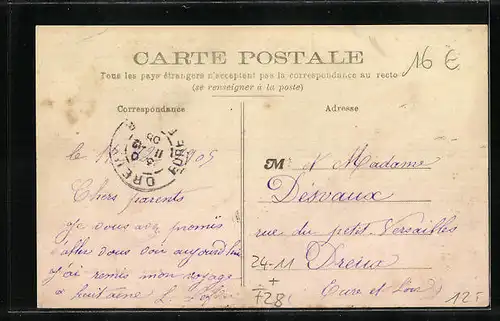 16 €
CARTE POSTALE
Tous les pays étrangers n'acceptent pas la correspondance au recto
(se renseigner à la poste)
Correspondance
Adresse
DREUX
EURE
le 1905
Chers parents
Je vous avez promis
d'aller vous voir aujourd'hui
J'ai remis mon voyage
a huitaine L.
M M Madame
Désvaux
rue du petit Versailles
Dreux
Eure et Loir
24-11
+
+28
12 F